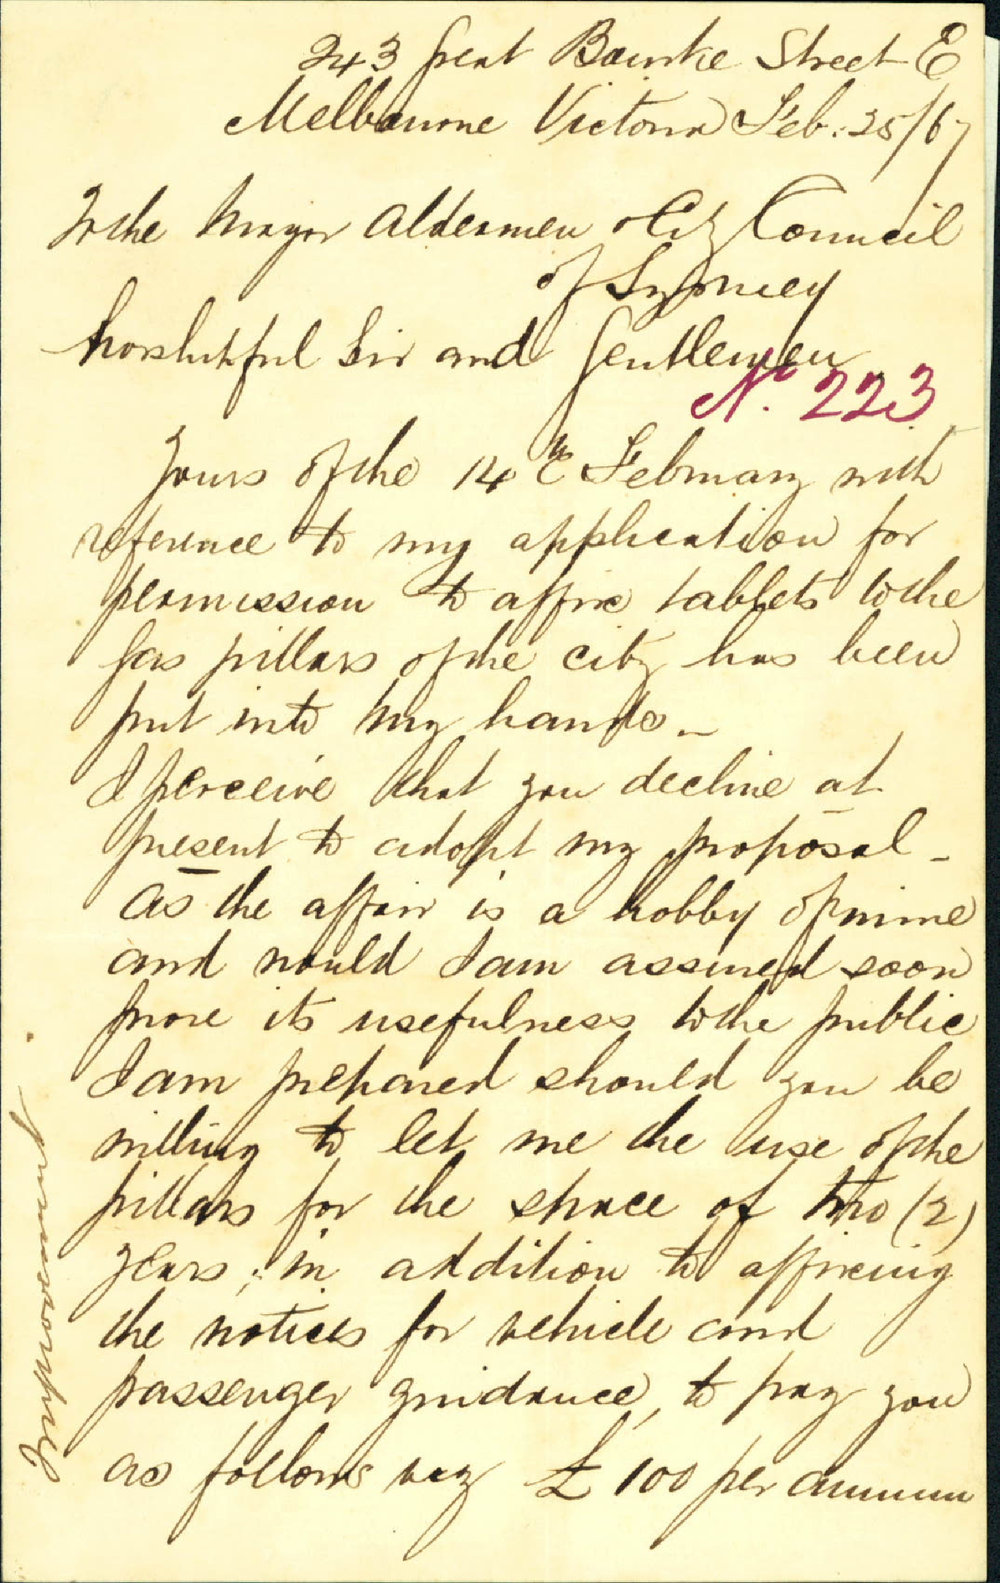 243 Great Bourke Street E
Melbourne Victoria Feb: 25/67
To the Mayor Aldermen & City Council
of Sydney
Worshipful Sir and Gentlemen
No. 223
Yours of the 14th February with
reference to my application for
permission to affix tablets to the
Gas pillars of the city has been
put into my hands _
I perceive that you decline at
present to adopt my proposal _
As the affair is a hobby of mine
and would I am assured soon
prove its usefulness to the public
I am prepared should you be
willing to let me the use of the
pillars for the space of two (2)
years; in addition to affixing
the notices for vehicle and
passenger guidance, to pay you
as follows viz £100 per annum